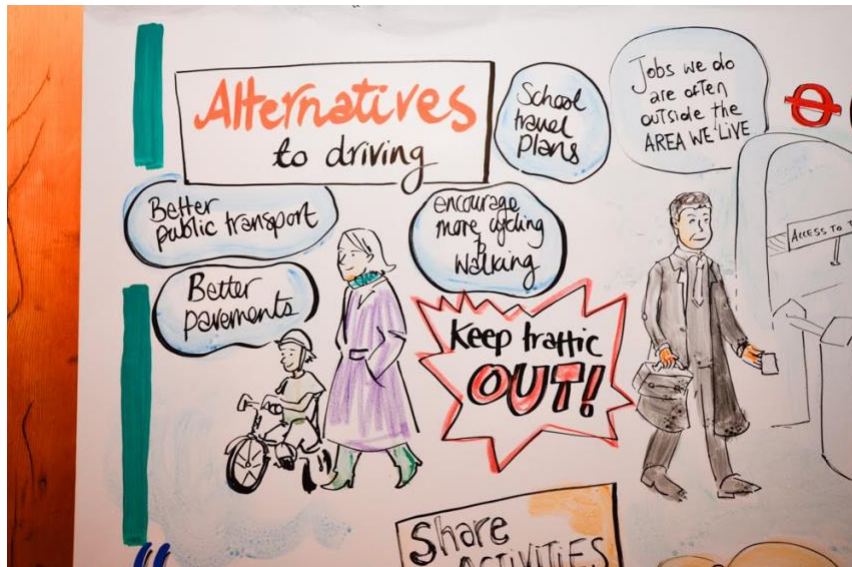 Alternatives
to driving
School
travel
plans
Jobs we do
are often
outside the
AREA WE LIVE
Better
public transport
encourage
more cycling
&
walking
Better
pavements
Keep traffic
OUT!
ACCESS TO
Share
ACTIVITIES